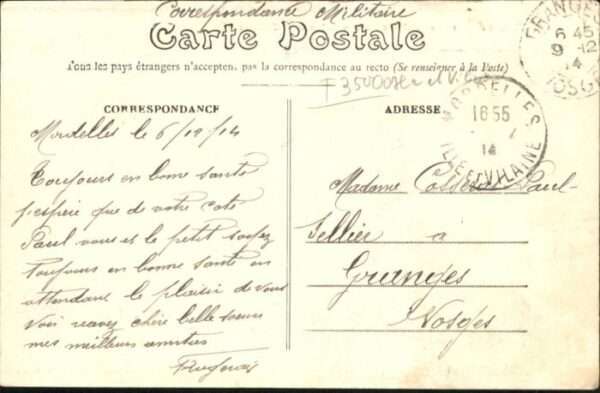 Correspondance Militaire
Carte Postale
Tous les pays étrangers n'acceptent pas la correspondance au recto (Se renseigner à la Poste)
35000 Ille et Vilaine
CORRESPONDANCE
ADRESSE
GRANGES
6 45
9 - 12
14
VOSGES
MORDELLES
16 55
14
ILLE-ET-VILAINE
Mordelles le 6/12/14
Toujours en bonne santé
j'espère que de votre coté
Paul vous et le petit soyez
toujours en bonne santé en
attendant le plaisir de vous
voir recevez chère belle soeur
mes meilleurs amitiés
Madame Paul
Sellier a
Granges
Vosges